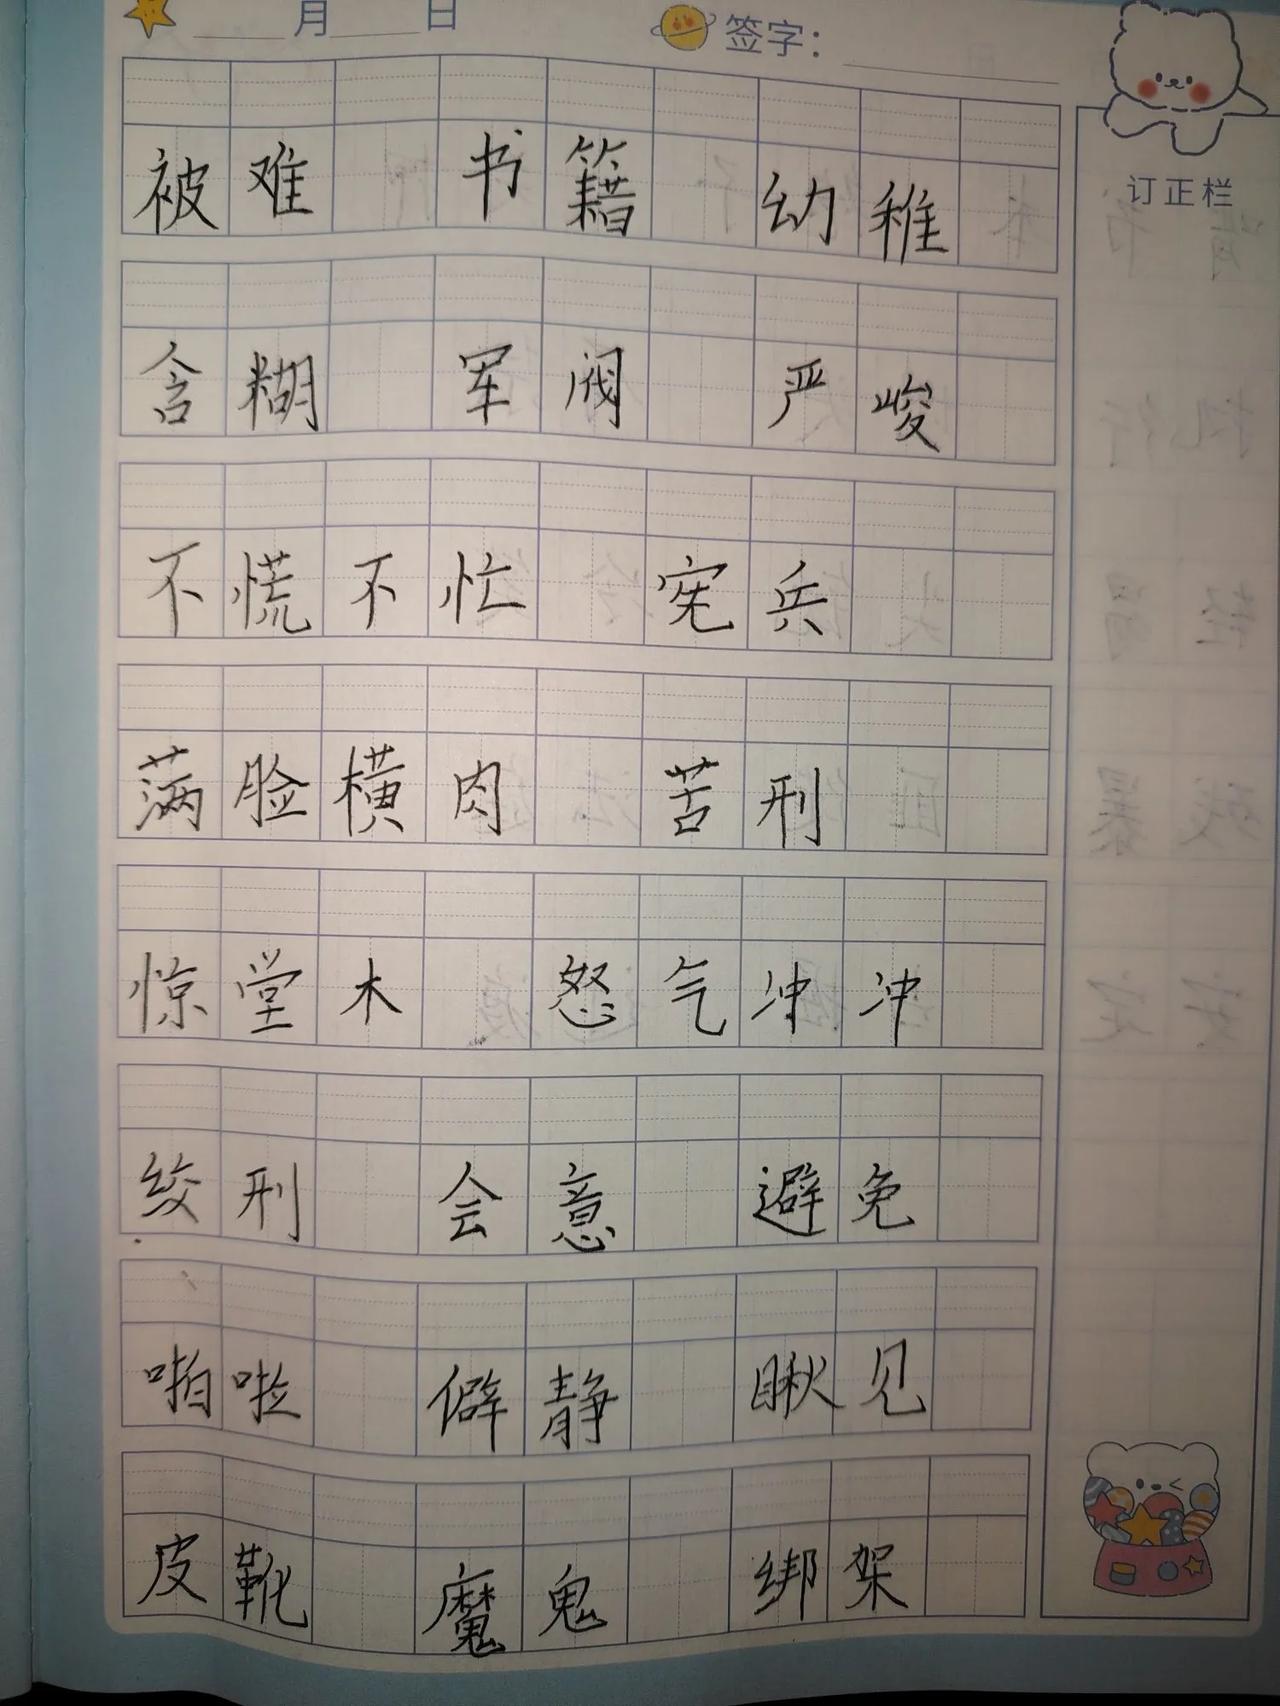 月 日 签字：
订正栏
被难 书籍 幼稚
含糊 军阀 严峻
不慌不忙 宪兵
满脸横肉 苦刑
惊堂木 怒气冲冲
绞刑 会意 避免
啪啦 僻静 瞅见
皮靴 魔鬼 绑架